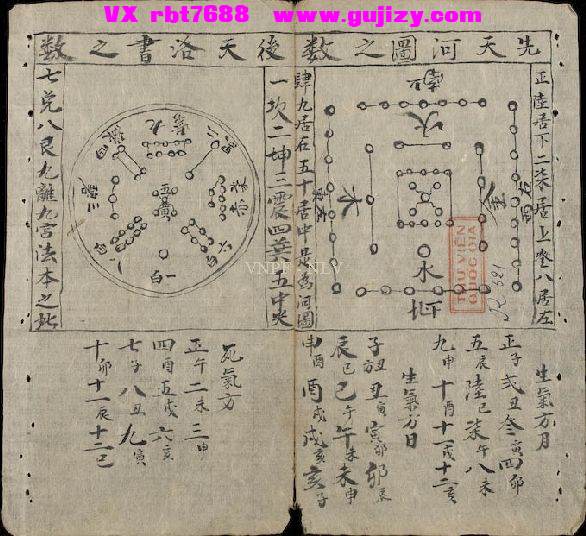 VX rbt7688 www.gujizy.com
先天河圖之數
後天洛書之數
正陸居下二柒居上叁八居左
肆九居右五十居中是為河圖
南
火
木
金
水
一坎二坤三震四巽五中央
七兌八艮九離九宮法本之此
九
一白
六白
VNPF NLV
THƯ VIỆN
QUỐC GIA
R.621
生氣方月
正子弍丑叁寅四卯
五辰陸巳柒午八未
九申十酉十一戌十二亥
生氣方日
子丑丑寅寅卯卯辰
辰巳巳午午未未申
申酉酉戌戌亥亥子
死氣方
正午二未三申
四酉五戌六亥
七子八丑九寅
十卯十一辰十二巳